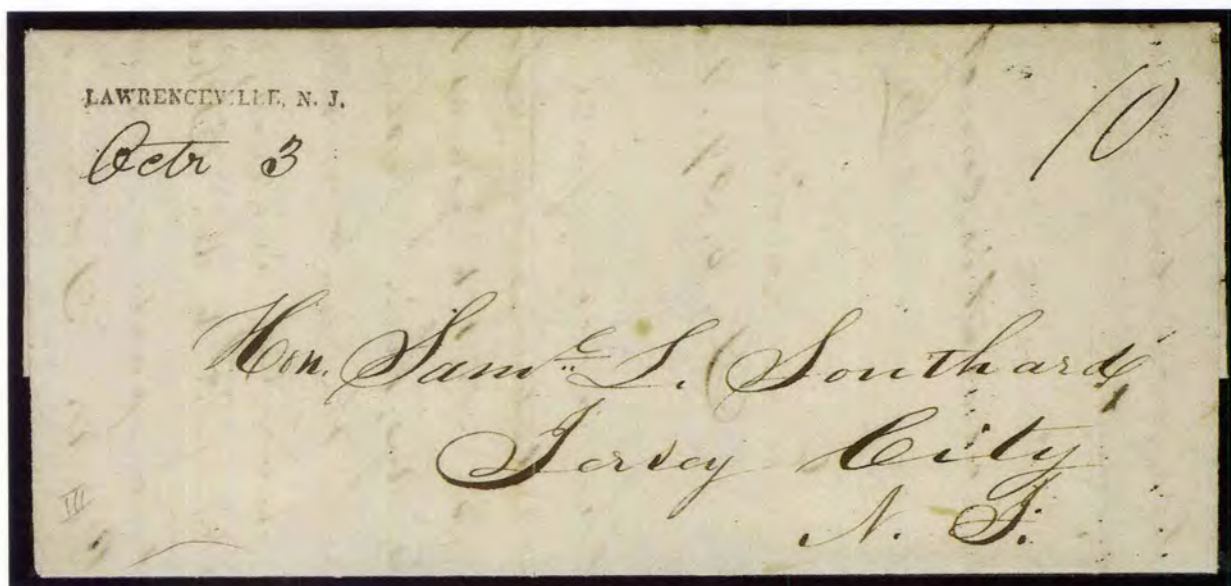 LAWRENCEVILLE, N. J.
Octr 3
10
Hon. Saml. L. Southard
Jersey City
N. J.
III